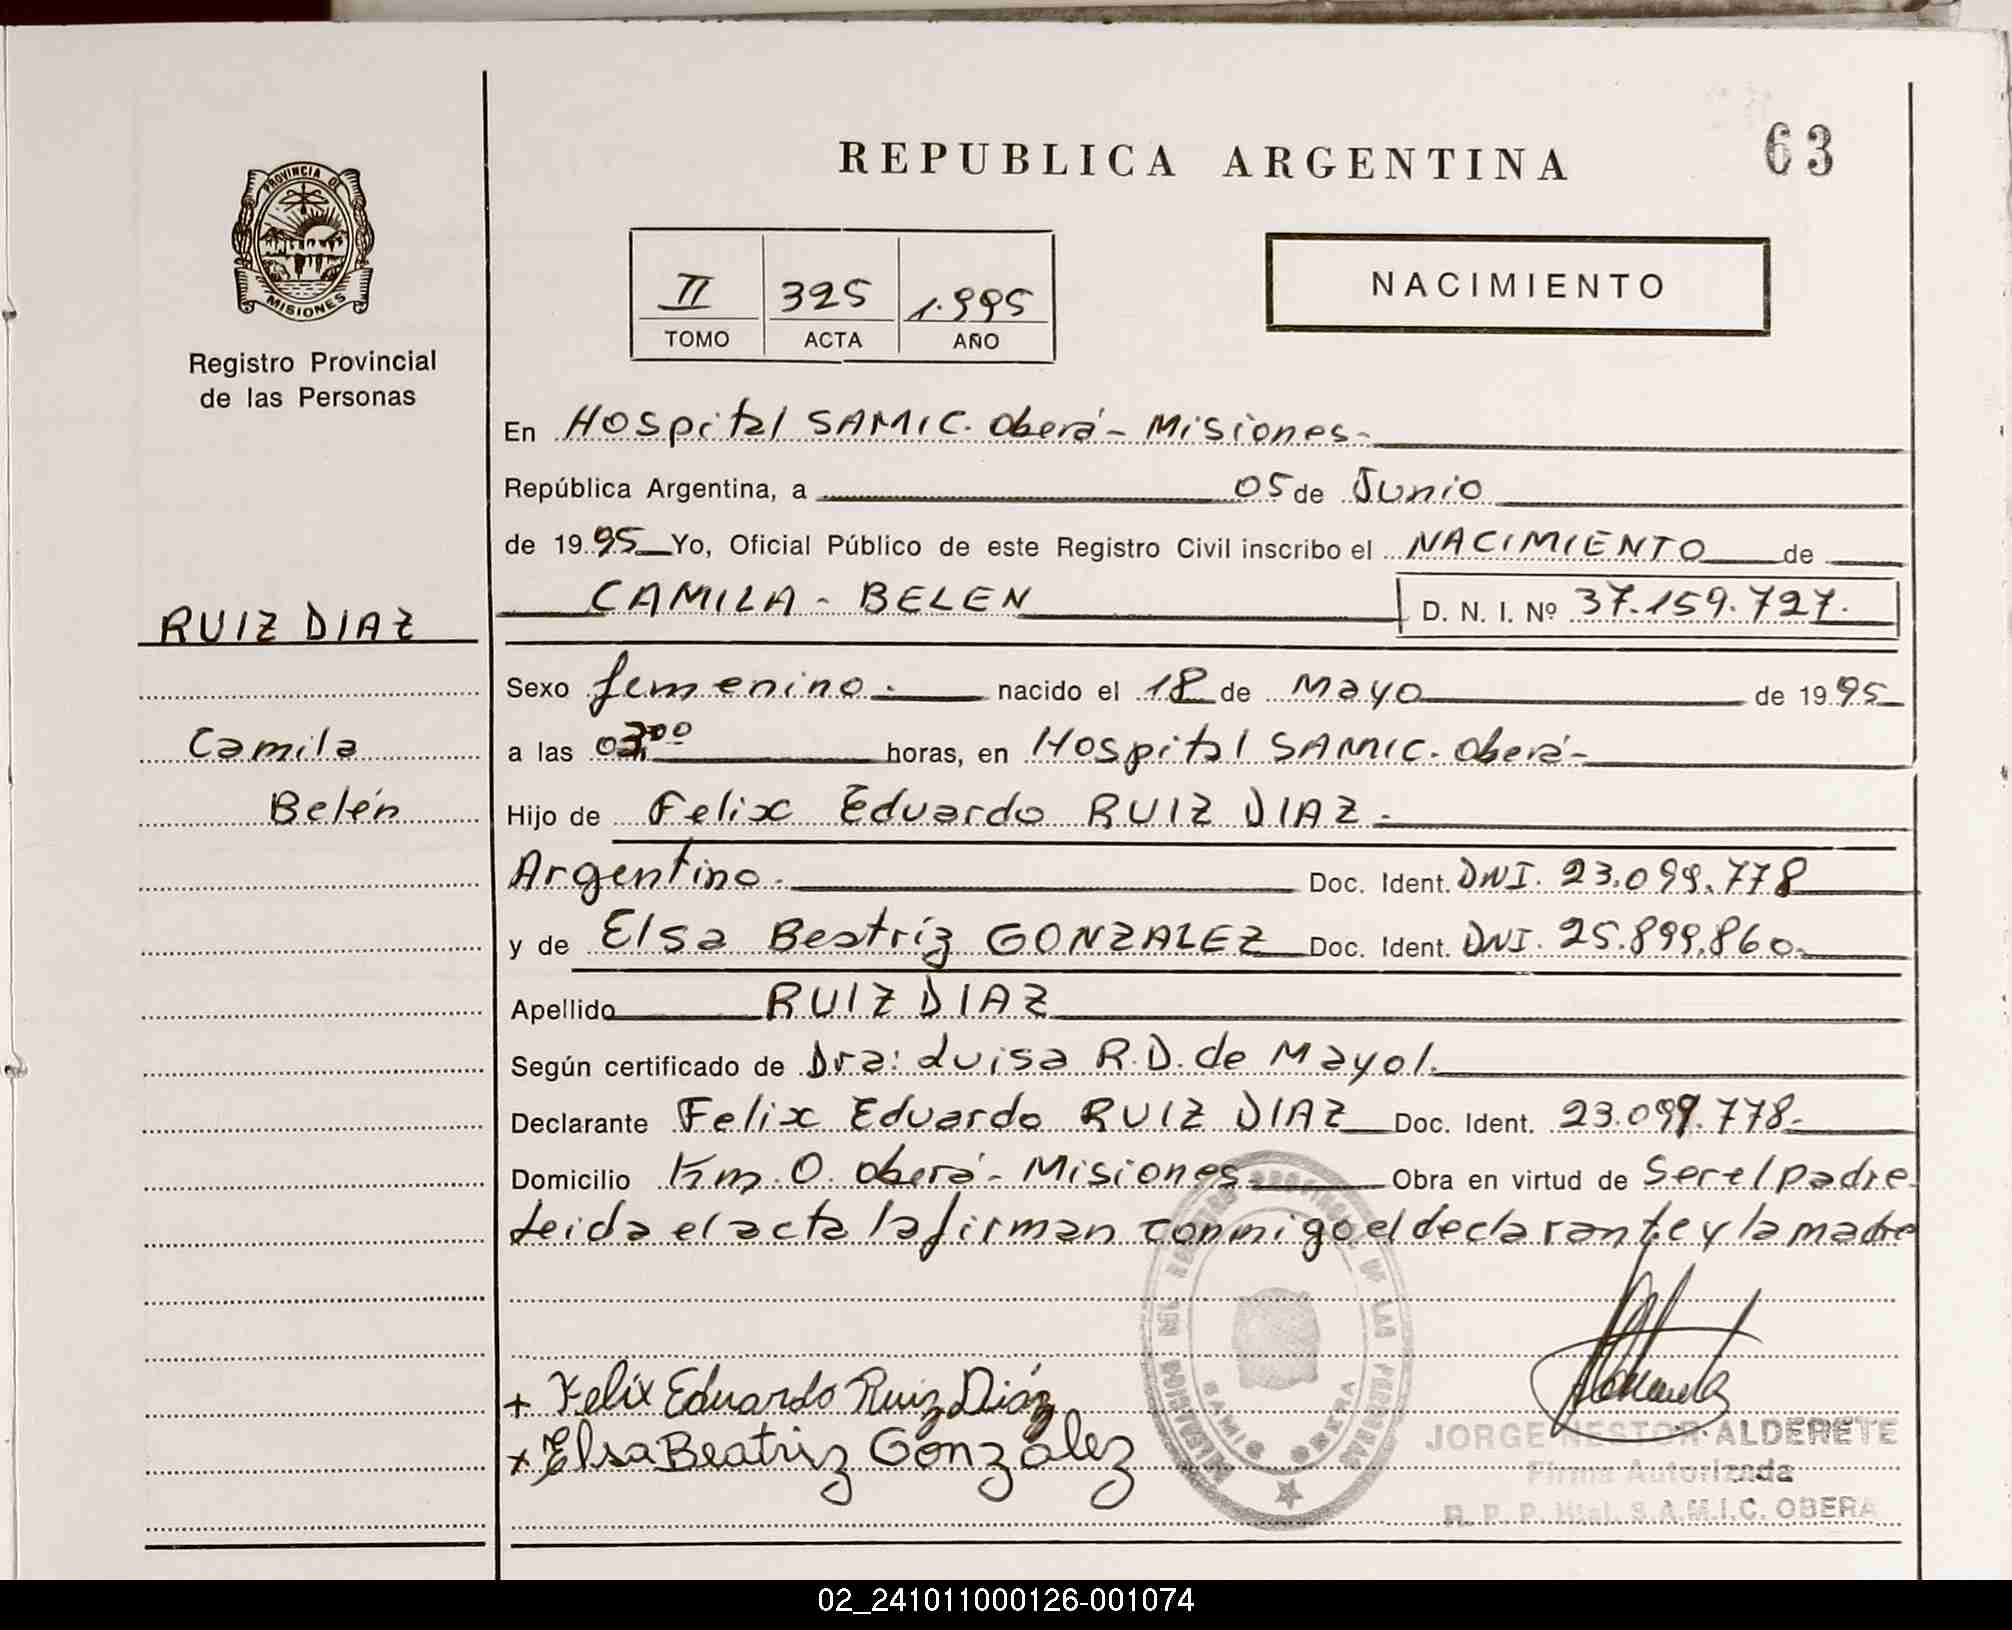 REPUBLICA ARGENTINA
63
PROVINCIA DE
MISIONES
Registro Provincial
de las Personas
II 325 1.995
TOMO ACTA AÑO
NACIMIENTO
En Hospital SAMIC. Oberá - Misiones -
República Argentina, a 05 de Junio
de 19 95 Yo, Oficial Público de este Registro Civil inscribo el NACIMIENTO de
CAMILA - BELEN D. N. I. Nº 37.159.727.
RUIZ DIAZ
Camila
Belén
Sexo femenino. nacido el 18 de Mayo de 19 95
a las 03,00 horas, en Hospital SAMIC. Oberá -
Hijo de Felix Eduardo RUIZ DIAZ -
Argentino. Doc. Ident. DNI. 23.099.778
y de Elsa Beatríz GONZALEZ Doc. Ident. DNI. 25.899.860.
Apellido RUIZ DIAZ
Según certificado de Dra: Luisa R.D. de Mayol.
Declarante Felix Eduardo RUIZ DIAZ Doc. Ident. 23.099.778.
Domicilio Km. O. Oberá - Misiones Obra en virtud de Ser el padre
Leida el acta la firman conmigo el declarante y la madre
+ Felix Eduardo Ruiz Diáz
x Elsa Beatriz González
SAMIC OBERA
JORGE NESTOR ALDERETE
Firma Autorizada
R. P. P. Htal. S.A.M.I.C. OBERA
02_241011000126-001074